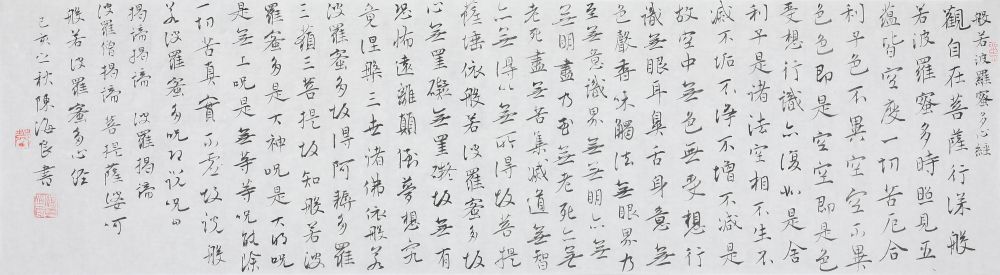 般若波罗蜜多心經
觀自在菩薩行深般
若波羅蜜多時照見五
蘊皆空度一切苦厄舍
利子色不異空空不異
色色即是空空即是色
受想行識亦復如是舍
利子是諸法空相不生不
滅不垢不淨不增不減是
故空中無色無受想行
識無眼耳鼻舌身意無
色聲香味觸法無眼界乃
至無意識界無無明亦無
無明盡乃至無老死亦無
老死盡無苦集滅道無智
亦無得以無所得故菩提
薩埵依般若波羅蜜多故
心無罣礙無罣礙故無有
恐怖遠離顛倒夢想究
竟涅槃三世諸佛依般若
波羅蜜多故得阿耨多羅
三藐三菩提故知般若波
羅蜜多是大神咒是大明咒
是無上咒是無等等咒能除
一切苦真實不虛故說般
若波羅蜜多咒即說咒曰
揭諦揭諦 波羅揭諦
波羅僧揭諦 菩提薩婆呵
般若波羅蜜多心經
己亥之秋陳海良書